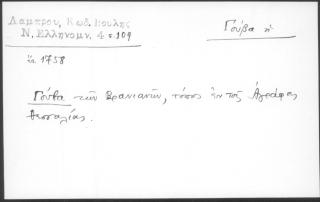 Λάμπρου, Κωδ. Βουλῆς
Ν. Ἑλληνομν. 4 σ 109
Γούβα ἡ
ἐν. 1758
Γούβα τῶν Βρανιανῶν, τόπος ἐν τοῖς Ἀγράφοις
Θεσσαλίας.